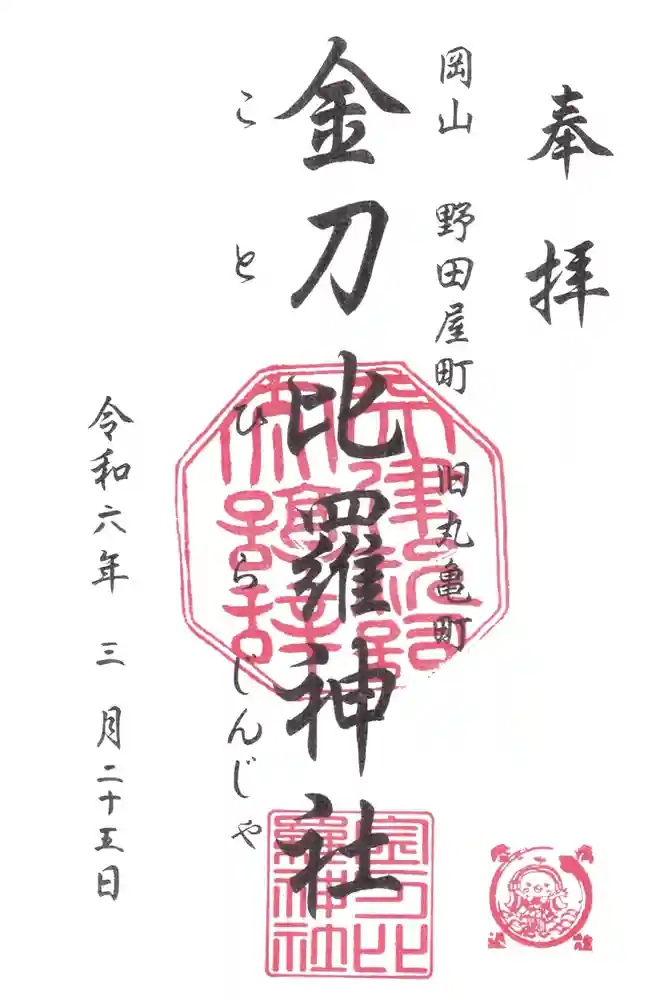 奉拝
岡山 野田屋町 旧丸亀町
金刀比羅神社
ことひらじんじゃ
令和六年 三月二十五日
金刀比羅神社